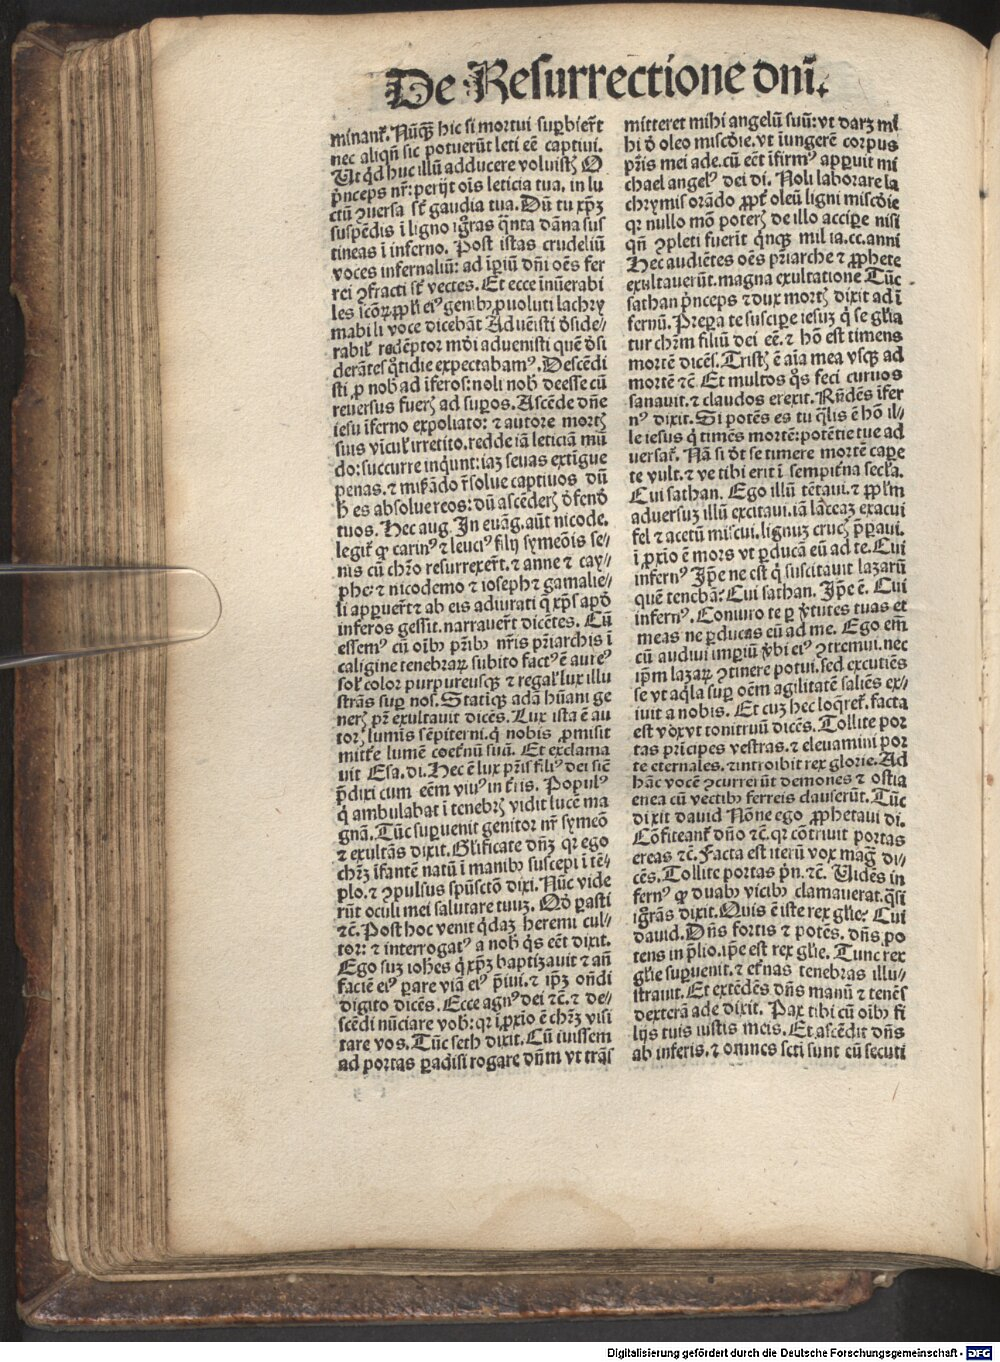 De Resurrectione dnī.
minant᷑. Nūq̄ꝫ hic si mortui suꝑbier̄t
nec aliqn̄ sic potuerūt leti eē captiui.
Ut qͥd huc illū adducere voluistꝫ O
pͥnceps nr̄: perijt oīs leticia tua. in lu
ctū ꝯuersa sᷓt gaudia tua. Dū tu xp̄ꝫ
suspēdis ī ligno igͦras qͣnta dāna sus
tineas ī inferno. Post istas crudeliū
voces infernaliū: ad īꝑiū dn̄i oēs fer
rei ꝯfracti sᷓt vectes. Et ecce inūerabi
les sc̄oꝝ ppl̓i eiꝰ genibꝫ ꝓuoluti lachry
mabili voce dicebāt Aduēisti ꝺside⸗
rabil̓ redēptor mūdi aduenisti quē ꝺsi
derātes qͦtidie expectabamꝰ. Descēdi
sti ꝓ nobꝭ ad īferos: noli nobꝭ deesse cū
reuersus fuerꝭ ad suꝑos. Ascēde dn̄e
iesu īferno expoliato: ⁊ autore mortꝭ
suis vīcul̓ irretito. redde iā leticiā mū
do: succurre inqͥunt: iaꝫ seuas extīgue
penas. ⁊ mis̓ādo r̄solue captiuos dū
hͥ es absolue reos: dū ascēderꝭ ꝺfenꝺ
tuos. Hec aug. In euāg. aūt nicode.
legit᷑ ꝙ carinꝰ ⁊ leuciꝰ filij symeōis se⸗
nis cū chr̄o resurrexer̄t. ⁊ anne ⁊ cay⸗
phe: ⁊ nicodemo ⁊ ioseph ⁊ gamalie⸗
li aꝑuer̄t ⁊ ab eis adiurati q̄ xp̄s apꝺ
inferos gessit. narrauer̄t dicētes. Cū
essemꝰ cū oībꝫ pr̄ibꝫ nr̄is pr̄iarchis ī
caligine tenebraꝝ subito factꝰ ē aureꝰ
sol̓ color purpureusqꝫ ⁊ regal̓ lux illu
strās suꝑ nos. Statiqꝫ adā hūani ge
nerꝭ pr̄ exultauit dicēs. Lux ista ē au
torꝭ lumīs sēpiterni. qͥ nobis ꝓmisit
mitt̓e lumē coet̓nū suū. Et exclama
uit Esa. di. Hec ē lux pr̄is filiꝰ dei sic̄
p̄dixi cum eēm viuꝰ in t̓ris. Populꝰ
qͥ ambulabat ī tenebrꝭ vidit lucē ma
gnā. Tūc suꝑuenit genitor nr̄ symeō
⁊ exultās dixit. Gl̓ificate dn̄ꝫ qꝛ ego
chr̄ꝫ īfantē natū ī manibꝫ suscepi ī tē⸗
plo. ⁊ ꝯpulsus spūsctō dixi. Nūc vide
rūt oculi mei salutare tuuꝫ. Qꝺ ꝑasti
⁊c̄. Post hoc venit qͥdaꝫ heremi cul⸗
tor: ⁊ interrogatꝰ a nobꝭ qͥs eēt dixit.
Ego suꝫ ioh̄es qͥ xp̄ꝫ baptizauit ⁊ an̄
faciē eiꝰ ꝑare viā eiꝰ p̄iui. ⁊ ip̄ꝫ on̄di
digito dicēs. Ecce agnꝰ dei ⁊c̄. ⁊ de⸗
scēdi nūciare vobꝭ: qꝛ ī ꝓxio ē chr̄ꝫ visi
tare vos. Tūc seth dixit. Cū iuissem
ad portas ꝑadisi rogare dn̄m vt trās
mitteret mihi angelū suū: vt darꝫ mi
hi ꝺ oleo misc̄die. vt īungerē corpus
pr̄is mei ade. cū eēt īfirmꝰ aꝑuit mi
chael angelꝰ dei di. Noli laborare la
chrymis orādo ꝓpt̓ oleū ligni misc̄die
qꝛ nullo mō poterꝭ de illo accipe nisi
qn̄ ꝯpleti fuerīt qͥnqꝫ milia. cc. anni
Hec audiētes oēs pr̄iarche ⁊ ꝓphete
exultauerūt. magna exultatione Tūc
sathan pͥnceps ⁊ dux mortꝭ dixit ad ī
fernū. Prepara te suscipe iesuꝫ qͥ se gl̓ia
tur chr̄m filiū dei eē. ⁊ hō est timens
mortē dicēs. Tristꝭ ē aīa mea vsqꝫ ad
mortē ⁊c̄. Et multos qͦs feci curuos
sanauit. ⁊ claudos erexit. Rn̄dēs īfer
nꝰ dixit. Si potēs es tu qͣlis ē hō il⸗
le iesus qͥ timēs mortē: potētie tue ad
uersat᷑. Nā si ꝺt se timere mortē capere
te vult. ⁊ ve tibi erit ī sempit̓na secl̓a.
Cui sathan. Ego illū tētaui. ⁊ ppl̓m
aduersuꝫ illū excitaui. iā lāceaꝫ exacui
fel ⁊ acetū miscui. lignuꝫ crucꝭ p̄ꝑaui.
ī ꝓxio ē mors vt ꝑducā eū ad te. Cui
infernꝰ Ip̄e ne est qͥ suscitauit lazarū
quē tenebā? Cui sathan. Ip̄e ē. Cui
infernꝰ. Coniuro te ꝑ v̓tutes tuas et
meas ne ꝑducas eū ad me. Ego em̄
cū audiui imꝑiū v̓bi eiꝰ ꝯtremui. nec
ip̄m lazaꝝ ꝯtinere potui. sed excutiēs
se vt aqͥla suꝑ oēm agilitatē saliēs ex⸗
iuit a nobis. Et cuꝫ hec loqͥret᷑. facta
est vox vt tonitruū dicēs. Tollite por
tas prīcipes vestras. ⁊ eleuamini por
te eternales. ⁊ introibit rex glorie. Ad
hāc vocē ꝯcurrerūt demones ⁊ ostia
enea cū vectibꝫ ferreis clauserūt. Tūc
dixit dauid Nōne ego ꝓphetaui di.
Cōfiteant᷑ dn̄o ⁊c̄. qꝛ cōtriuit portas
ereas ⁊c̄. Facta est iterū vox magͣ di⸗
cēs. Tollite portas pͥn. ⁊c̄. Uidēs in
fernꝰ ꝙ duabꝫ vicibꝫ clamauerat. qͣsi
igͦrās dixit. Quis ē iste rex gl̓ie? Cui
dauid. Dn̄s fortis ⁊ potēs. dn̄s po
tens in p̄lio. ip̄e est rex gl̓ie. Tunc rex
gl̓ie suꝑuenit. ⁊ et̓nas tenebras illu⸗
strauit. Et extēdēs dn̄s manū ⁊ tenēs
dexterā ade dixit. Pax tibi cū oībꝫ fi
lijs tuis iustis meis. Et ascēdit dn̄s
ab inferis. ⁊ omnes scti sunt eū secuti
Digitalisierung gefördert durch die Deutsche Forschungsgemeinschaft - DFG